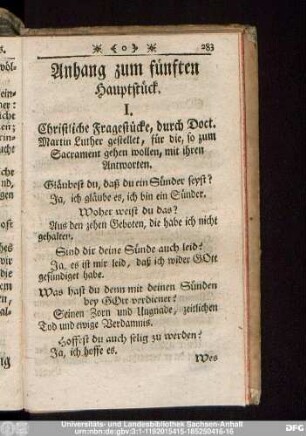 ❋ ( o ) ❋ 283
Anhang zum fünften
Hauptstück.
I.
Christliche Fragestücke, durch Doct.
Martin Luther gestellet, für die, so zum
Sacrament gehen wollen, mit ihren
Antworten.
Gläubest du, daß du ein Sünder seyst?
Ja, ich gläube es, ich bin ein Sünder.
Woher weist du das?
Aus den zehen Geboten, die habe ich nicht
gehalten.
Sind dir deine Sünde auch leid?
Ja, es ist mir leid, daß ich wider GOtt
gesündiget habe.
Was hast du denn mit deinen Sünden
bey GOtt verdienet?
Seinen Zorn und Ungnade, zeitlichen
Tod und ewige Verdamniß.
Hoffest du auch selig zu werden?
Ja, ich hoffe es.
Wes
Universitäts- und Landesbibliothek Sachsen-Anhalt
urn:nbn:de:gbv:3:1-1192015415-165250416-16
DFG